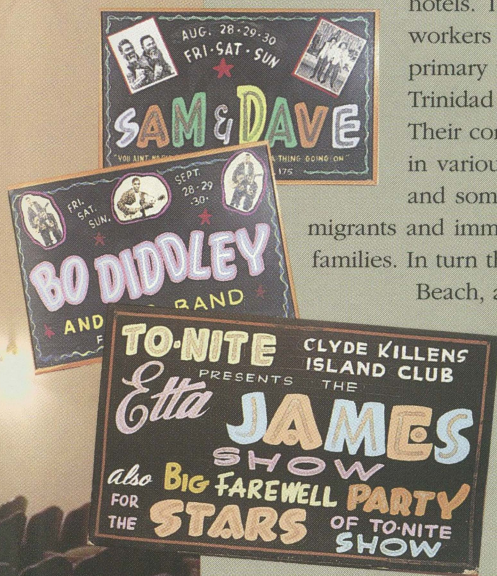 hotels. T
workers
primary
Trinidad
Their co
in variou
and som
migrants and imm
families. In turn th
Beach, a
AUG. 28·29·30
FRI·SAT·SUN
SAM & DAVE
"YOU AINT A THING GOING ON"
175
FRI.
SAT.
SUN.
SEPT.
28·29
·30·
BO DIDDLEY
AND BAND
TO·NITE CLYDE KILLENS
PRESENTS THE ISLAND CLUB
Etta JAMES
SHOW
also BIG FAREWELL PARTY
FOR THE STARS OF TO·NITE
SHOW